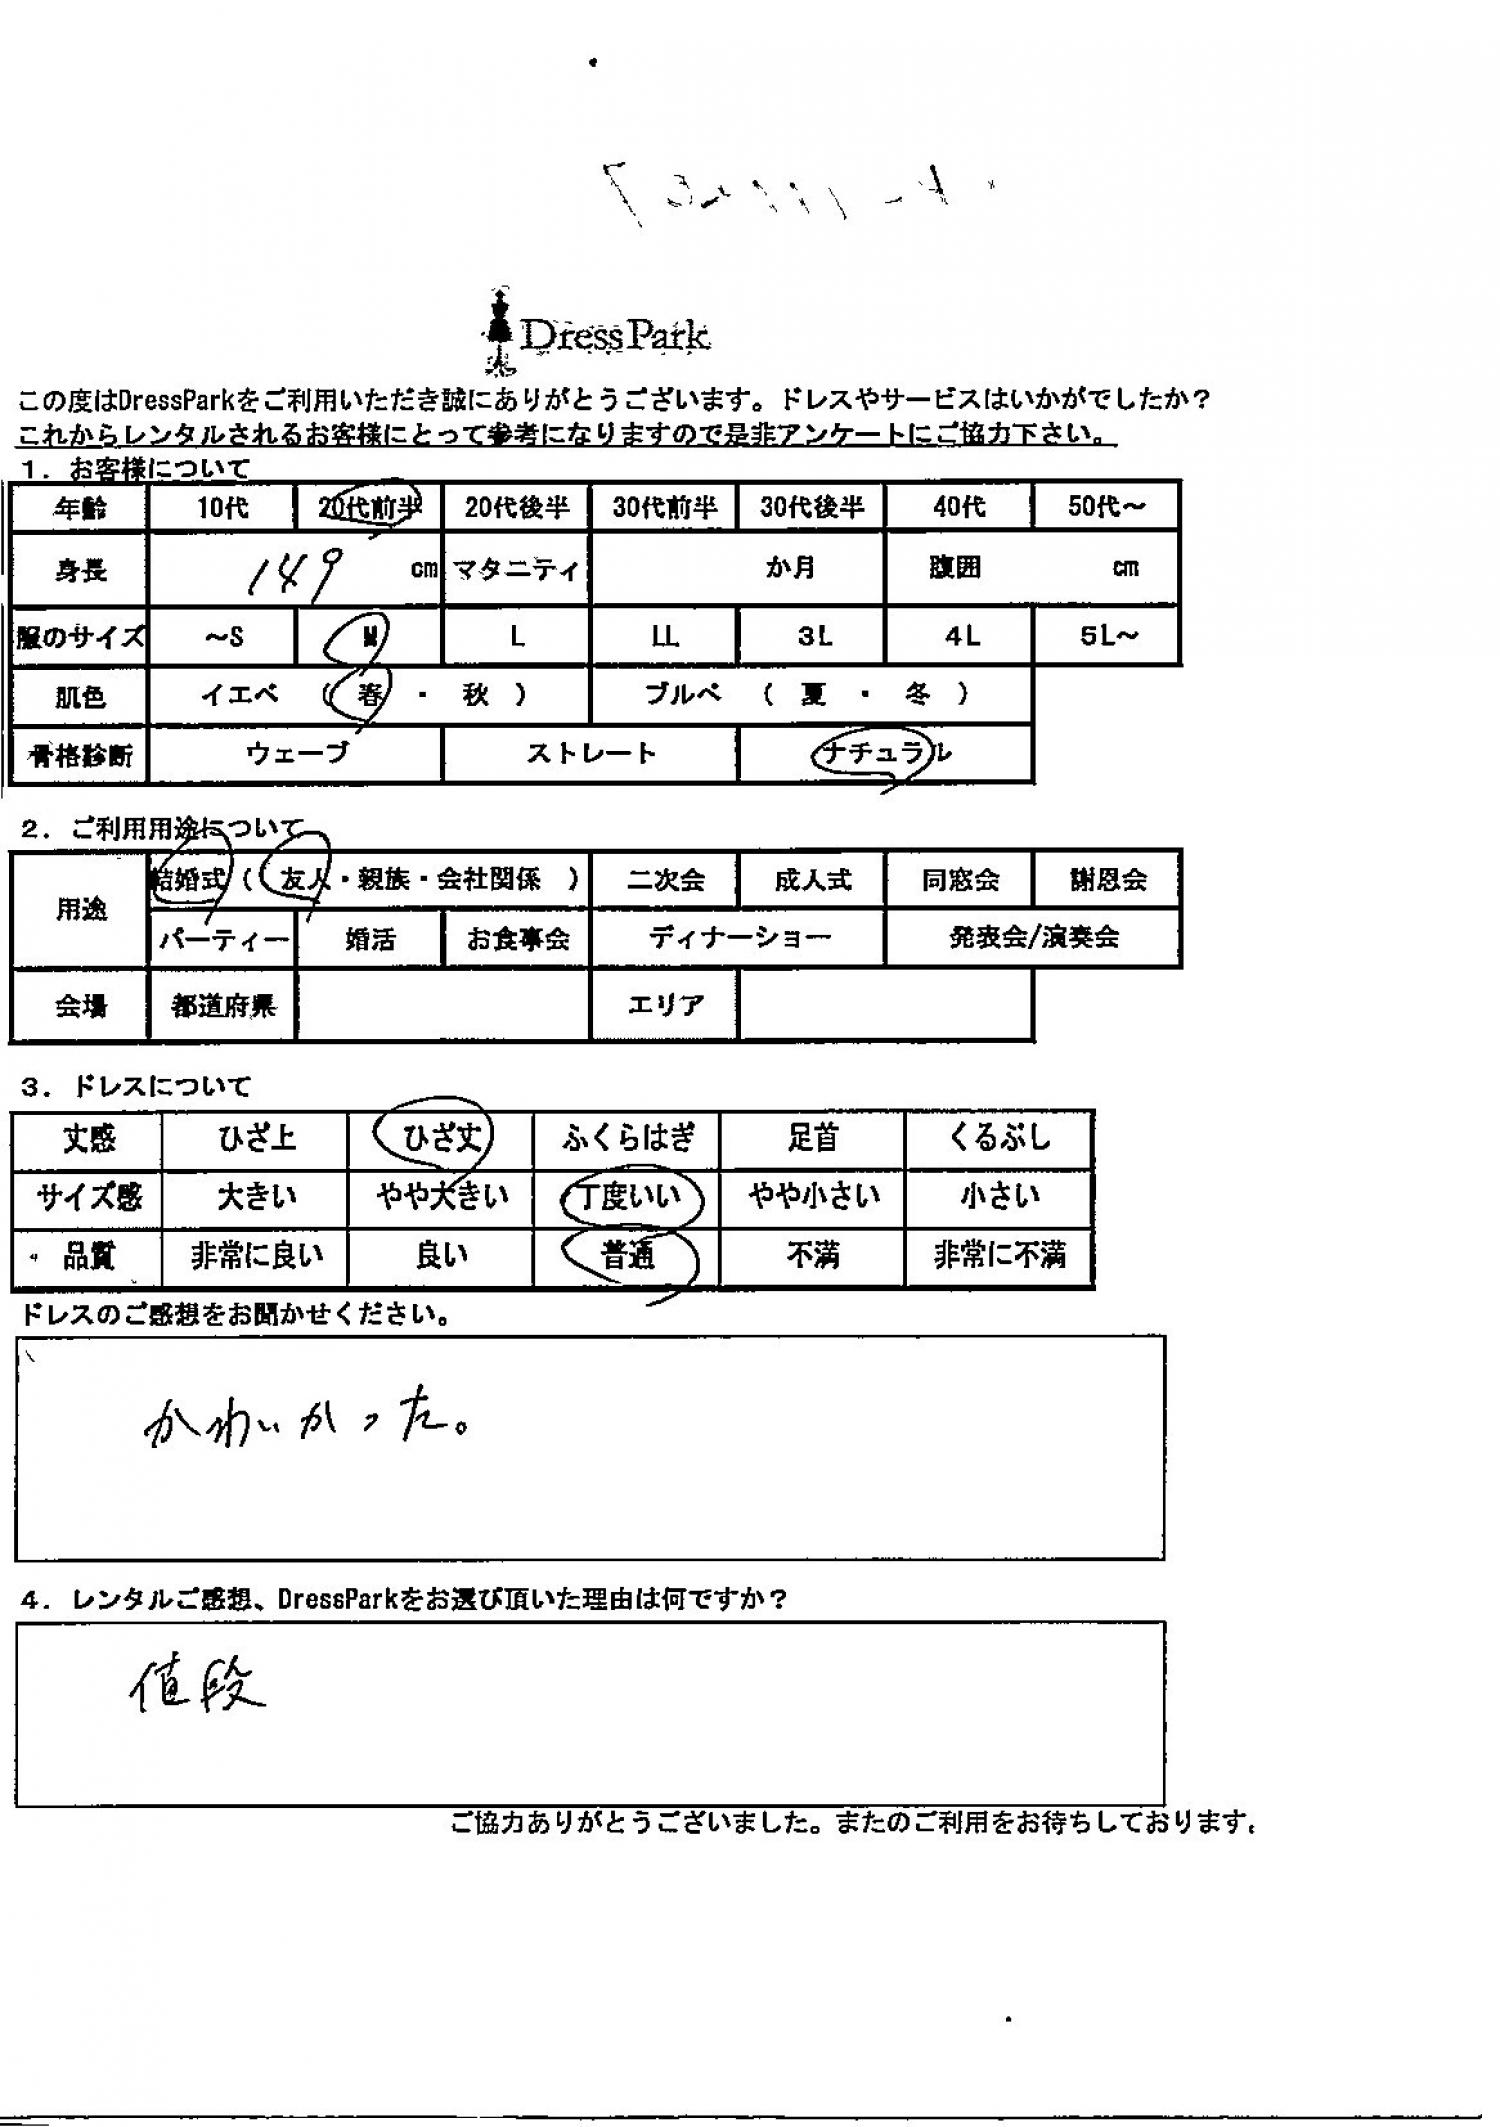 DressPark
この度はDressParkをご利用いただき誠にありがとうございます。ドレスやサービスはいかがでしたか？
これからレンタルされるお客様にとって参考になりますので是非アンケートにご協力下さい。
1．お客様について
年齢 10代 20代前半 20代後半 30代前半 30代後半 40代 50代～
身長 149 cm マタニティ か月 腹囲 cm
服のサイズ ～S M L LL 3L 4L 5L～
肌色 イエベ （ 春 ・ 秋 ） ブルベ （ 夏 ・ 冬 ）
骨格診断 ウェーブ ストレート ナチュラル
2．ご利用用途について
用途 結婚式（ 友人・親族・会社関係 ） 二次会 成人式 同窓会 謝恩会
パーティー 婚活 お食事会 ディナーショー 発表会/演奏会
会場 都道府県 エリア
3．ドレスについて
丈感 ひざ上 ひざ丈 ふくらはぎ 足首 くるぶし
サイズ感 大きい やや大きい 丁度いい やや小さい 小さい
品質 非常に良い 良い 普通 不満 非常に不満
ドレスのご感想をお聞かせください。
かわいかった。
4．レンタルご感想、DressParkをお選び頂いた理由は何ですか？
値段
ご協力ありがとうございました。またのご利用をお待ちしております。